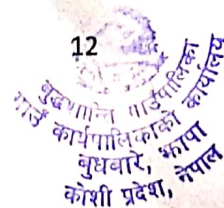 12
बुद्धशान्ति गाउँपालिका
गाउँ कार्यपालिकाको कार्यालय
बुधबारे, झापा
कोशी प्रदेश, नेपाल